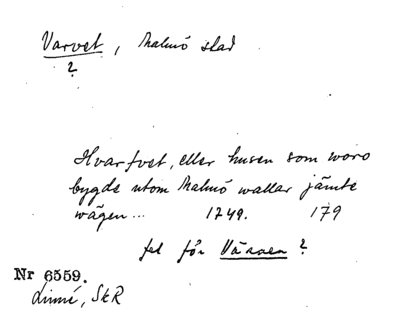 Varvet, Malmö stad
?
Hvarfvet, eller husen som woro
bygde utom Malmö wallar jämte
wägen... 1749. 179
fel för Värnen ?
Nr 6559.
Linné, SkR